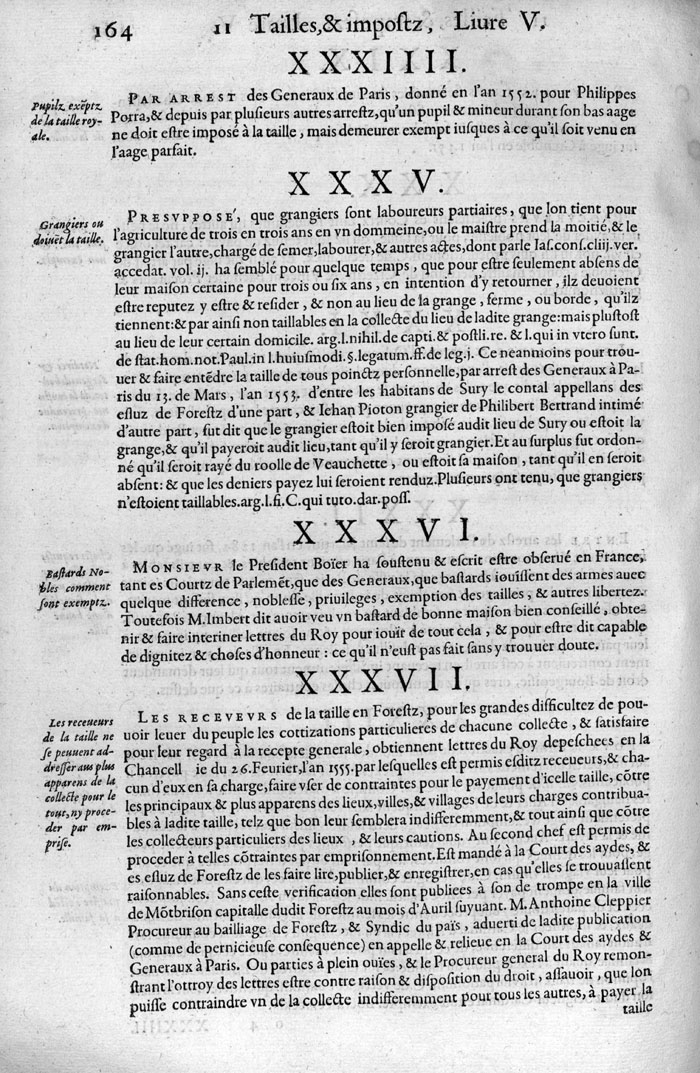 164 11 Tailles,& impostz, Liure V.
XXXIIII.
Pupilz exẽptz
de la taille roy-
ale.
PAR ARREST des Generaux de Paris, donné en l'an 1552. pour Philippes
Porra,& depuis par plusieurs autres arrestz,qu'un pupil & mineur durant son bas aage
ne doit estre imposé à la taille, mais demeurer exempt iusques à ce qu'il soit venu en
l'aage parfait.
XXXV.
Grangiers ou
doiuẽt la taille.
PRESVPPOSE', que grangiers sont laboureurs partiaires, que lon tient pour
l'agriculture de trois en trois ans en vn dommeine,ou le maistre prend la moitié,& le
grangier l'autre,chargé de semer,labourer,& autres actes,dont parle Ias.cons.cliij.ver.
accedat. vol. ij. ha semblé pour quelque temps, que pour estre seulement absens de
leur maison certaine pour trois ou six ans, en intention d'y retourner, ilz deuoient
estre reputez y estre & resider, & non au lieu de la grange, ferme, ou borde, qu'ilz
tiennent:& par ainsi non taillables en la collecte du lieu de ladite grange:mais plustost
au lieu de leur certain domicile. arg.l.nihil.de capti.& postli.re. & l.qui in vtero sunt.
de stat.hom.not.Paul.in l.huiusmodi.§.legatum.ff.de leg.j. Ce neanmoins pour trou-
uer & faire entẽdre la taille de tous poinctz personnelle,par arrest des Generaux à Pa-
ris du 13. de Mars, l'an 1553. d'entre les habitans de Sury le contal appellans des
esluz de Forestz d'une part, & Iehan Pioton grangier de Philibert Bertrand intimé
d'autre part, fut dit que le grangier estoit bien imposé audit lieu de Sury ou estoit la
grange,& qu'il payeroit audit lieu,tant qu'il y seroit grangier.Et au surplus fut ordon-
né qu'il seroit rayé du roolle de Veauchette, ou estoit sa maison, tant qu'il en seroit
absent: & que les deniers payez lui seroient renduz.Plusieurs ont tenu, que grangiers
n'estoient taillables.arg.l.fi.C.qui tuto.dar.poss.
XXXVI.
Bastards No-
bles comment
sont exemptz.
MONSIEVR le President Boïer ha soustenu & escrit estre obserué en France,
tant es Courtz de Parlemẽt,que des Generaux,que bastards iouïssent des armes auec
quelque difference, noblesse, priuileges, exemption des tailles, & autres libertez.
Toutefois M.Imbert dit auoir veu vn bastard de bonne maison bien conseillé, obte-
nir & faire interiner lettres du Roy pour iouïr de tout cela, & pour estre dit capable
de dignitez & choses d'honneur : ce qu'il n'eust pas fait sans y trouuer doute.
XXXVII.
Les receueurs
de la taille ne
se peuuent ad-
dresser aus plus
apparens de la
collecte pour le
tout,ny proce-
der par em-
prise.
LES RECEVEVRS de la taille en Forestz, pour les grandes difficultez de pou-
uoir leuer du peuple les cottizations particulieres de chacune collecte, & satisfaire
pour leur regard à la recepte generale, obtiennent lettres du Roy depeschees en la
Chancell ie du 26.Feurier,l'an 1555.par lesquelles est permis esditz receueurs,& cha-
cun d'eux en sa charge,faire vser de contraintes pour le payement d'icelle taille, cõtre
les principaux & plus apparens des lieux,villes,& villages de leurs charges contribua-
bles à ladite taille, telz que bon leur semblera indifferemment,& tout ainsi que cõtre
les collecteurs particuliers des lieux, & leurs cautions. Au second chef est permis de
proceder à telles cõtraintes par emprisonnement.Est mandé à la Court des aydes, &
es esluz de Forestz de les faire lire,publier,& enregistrer,en cas qu'elles se trouuassent
raisonnables. Sans ceste verification elles sont publiees à son de trompe en la ville
de Mõtbrison capitalle dudit Forestz au mois d'Auril suyuant. M.Anthoine Cleppier
Procureur au bailliage de Forestz, & Syndic du païs, aduerti de ladite publication
(comme de pernicieuse consequence) en appelle & relieue en la Court des aydes &
Generaux à Paris. Ou parties à plein ouïes, & le Procureur general du Roy remon-
strant l'ottroy des lettres estre contre raison & disposition du droit, assauoir, que lon
puisse contraindre vn de la collecte indifferemment pour tous les autres, à payer la
taille